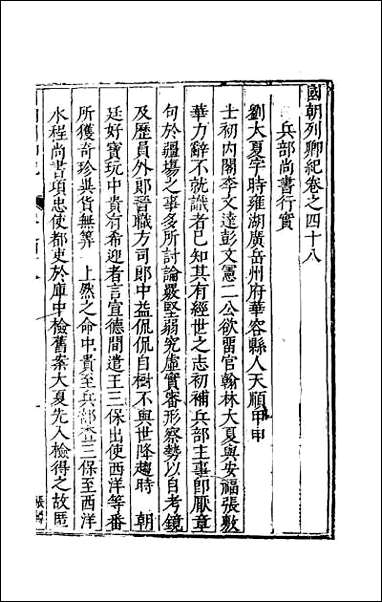 國朝列卿紀卷之四十八
兵部尚書行實
劉大夏字時雍湖廣岳州府華容縣人天順甲申
士初內閣李文達彭文憲二公欲留官翰林大夏與安福張敷
華力辭不就識者已知其有經世之志初補兵部主事即厭章
句於疆場之事多所討論嚴堅弱究虛實審形察勢以自考鏡
及歷員外郎晉職方司郎中益侃侃自樹不與世降趨時 朝
廷好寶玩中貴有希迎者言宣德間遣王三保出使西洋等番
所獲奇珍異貨無筭 上然之命中貴至兵部查三保至西洋
水程尚書項忠使都吏於庫中檢舊案大夏先入檢得之故匿